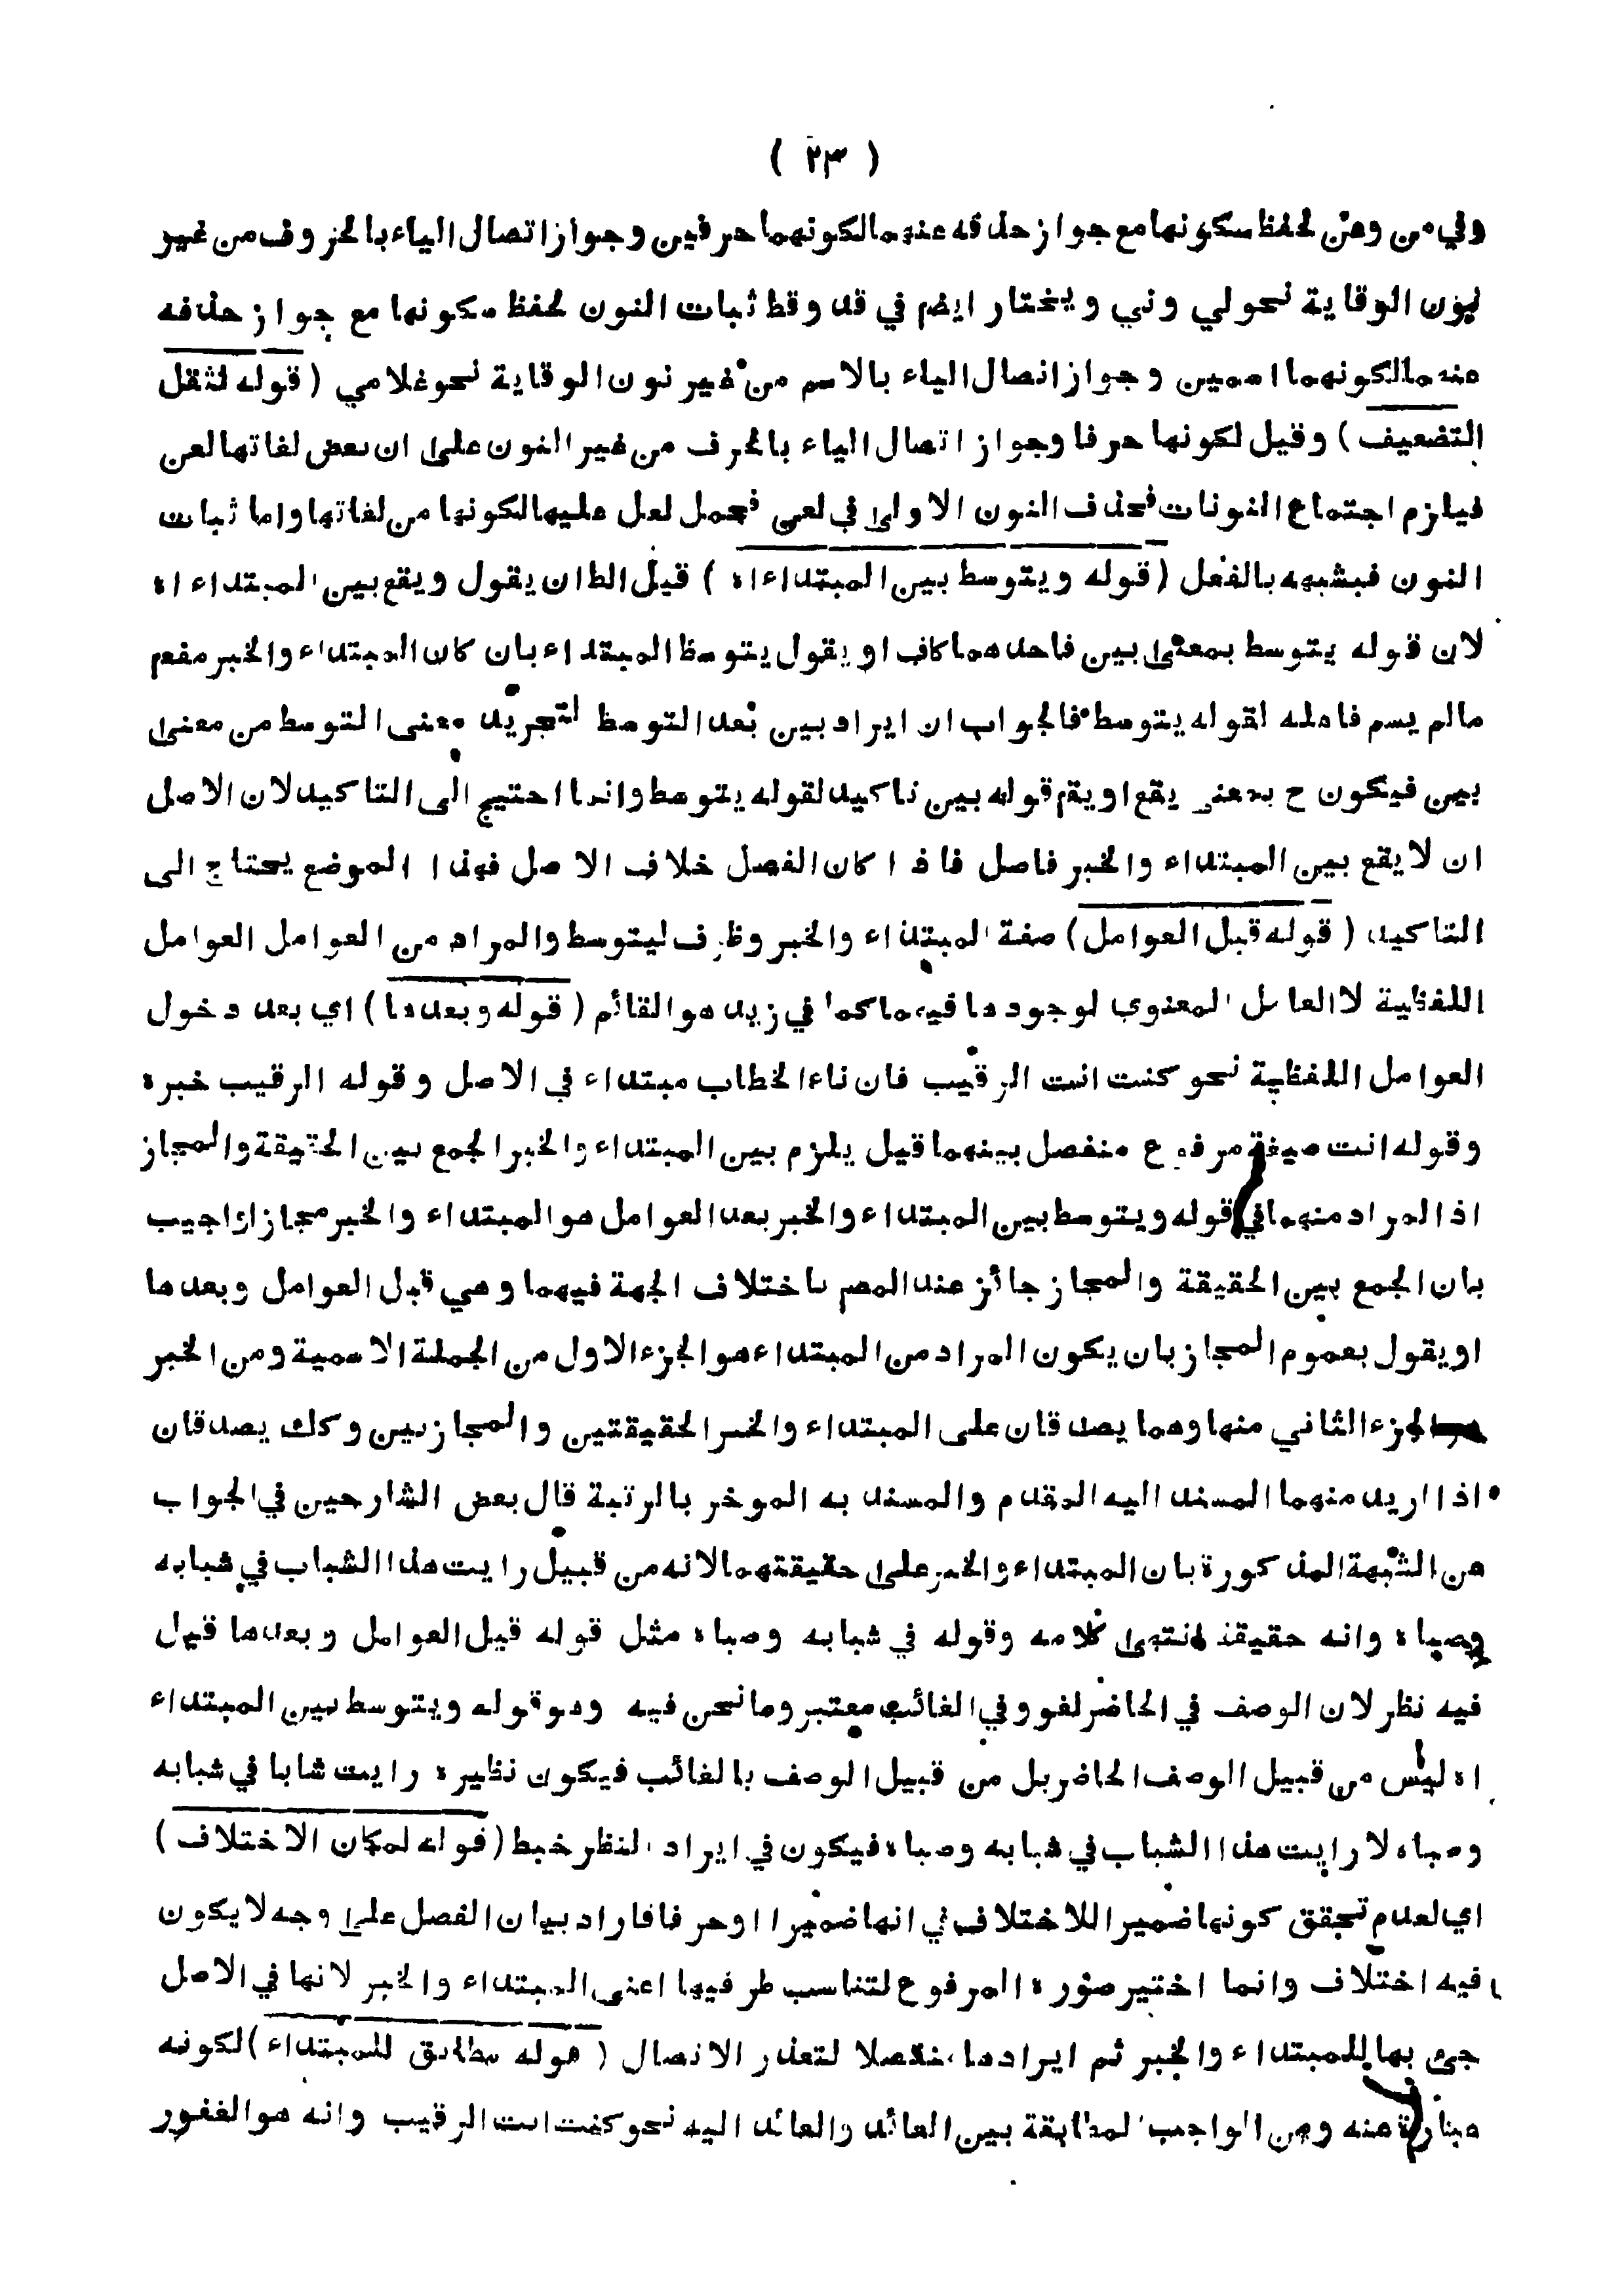 ( ٢٣ )
وفي من وعن لحفظ سكونها مع جواز حذفه عنهما لكونهما حرفين وجواز اتصال الياء بالحروف من غير
نون الوقاية نحو لي وني ويختار ايضم في قد وقط ثبات النون لحفظ سكونها مع جواز حذفه
عنهما لكونهما اسمين وجواز اتصال الياء بالاسم من غير نون الوقاية نحو غلامي ( قوله لثقل
التضعيف ) وقيل لكونها حرفا وجواز اتصال الياء بالحرف من غير النون على ان بعض لغاتها لعن
فيلزم اجتماع النونات فحذف النون الاولى في لعن فحمل لعل عليها لكونها من لغاتها واما ثبات
النون فبشبهه بالفعل ( قوله ويتوسط بين المبتداء اه ) قيل الظ ان يقول ويقع بين المبتداء اه
لان قوله يتوسط بمعنى بين فاحدهما كاف او يقول يتوسط المبتداء بان كان المبتداء والخبر مفعم
مالم يسم فاعله لقوله يتوسط فالجواب ان ايراد بين بعد التوسط لتجريد معنى التوسط من معنى
بين فيكون ح بمعنى يقع او يقم قوله بين تاكيد لقوله يتوسط وانما احتيج الى التاكيد لان الاصل
ان لا يقع بين المبتداء والخبر فاصل فاذا كان الفصل خلاف الاصل فهذا الموضع يحتاج الى
التاكيد ( قوله قبل العوامل ) صفة المبتداء والخبر وظرف ليتوسط والمراد من العوامل العوامل
اللفظية لا العامل المعنوي لوجودها فيهما كما في زيد هو القائم ( قوله وبعدها ) اي بعد دخول
العوامل اللفظية نحو كنت انت الرقيب فان تاء الخطاب مبتداء في الاصل وقوله الرقيب خبره
وقوله انت صيغة مرفوع منفصل بينهما قيل يلزم بين المبتداء والخبر الجمع بين الحقيقة والمجاز
اذ المراد منهما في قوله ويتوسط بين المبتداء والخبر بعد العوامل هو المبتداء والخبر مجازا اجيب
بان الجمع بين الحقيقة والمجاز جائز عند المصم باختلاف الجهة فيهما وهي قبل العوامل وبعدها
او يقول بعموم المجاز بان يكون المراد من المبتداء هو الجزء الاول من الجملة الاسمية ومن الخبر
هو الجزء الثاني منها وهما يصدقان على المبتداء والخبر الحقيقتين والمجازيين وكك يصدقان
اذا اريد منهما المسند اليه المقدم والمسند به الموخر بالرتبة قال بعض الشارحين في الجواب
عن الشبهة المذكورة بان المبتداء والخبر على حقيقتهما لانه من قبيل رايت هذا الشباب في شبابه
وصباه وانه حقيقة انتهى كلامه وقوله في شبابه وصباه مثل قوله قبل العوامل وبعدها قيل
فيه نظر لان الوصف في الحاضر لغو وفي الغائب معتبر وما نحن فيه وهو قوله ويتوسط بين المبتداء
اه ليس من قبيل الوصف الحاضر بل من قبيل الوصف بالغائب فيكون نظيره رايت شابا في شبابه
وصباه لا رايت هذا الشباب في شبابه وصباه فيكون في ايراد النظر خبط ( قوله لمكان الاختلاف )
اي لعدم تحقق كونها ضميرا للاختلاف في انها ضميرا او حرفا فاراد بيان الفصل على وجه لا يكون
فيه اختلاف وانما اختير صورة المرفوع لتناسب طرفيها اعنى المبتداء والخبر لانها في الاصل
جىء بها للمبتداء والخبر ثم ايرادها منفصلا لتعذر الاتصال ( قوله مطابق للمبتداء ) لكونه
عبارة عنه ومن الواجب المطابقة بين العائد والعائد اليه نحو كنت انت الرقيب وانه هو الغفور